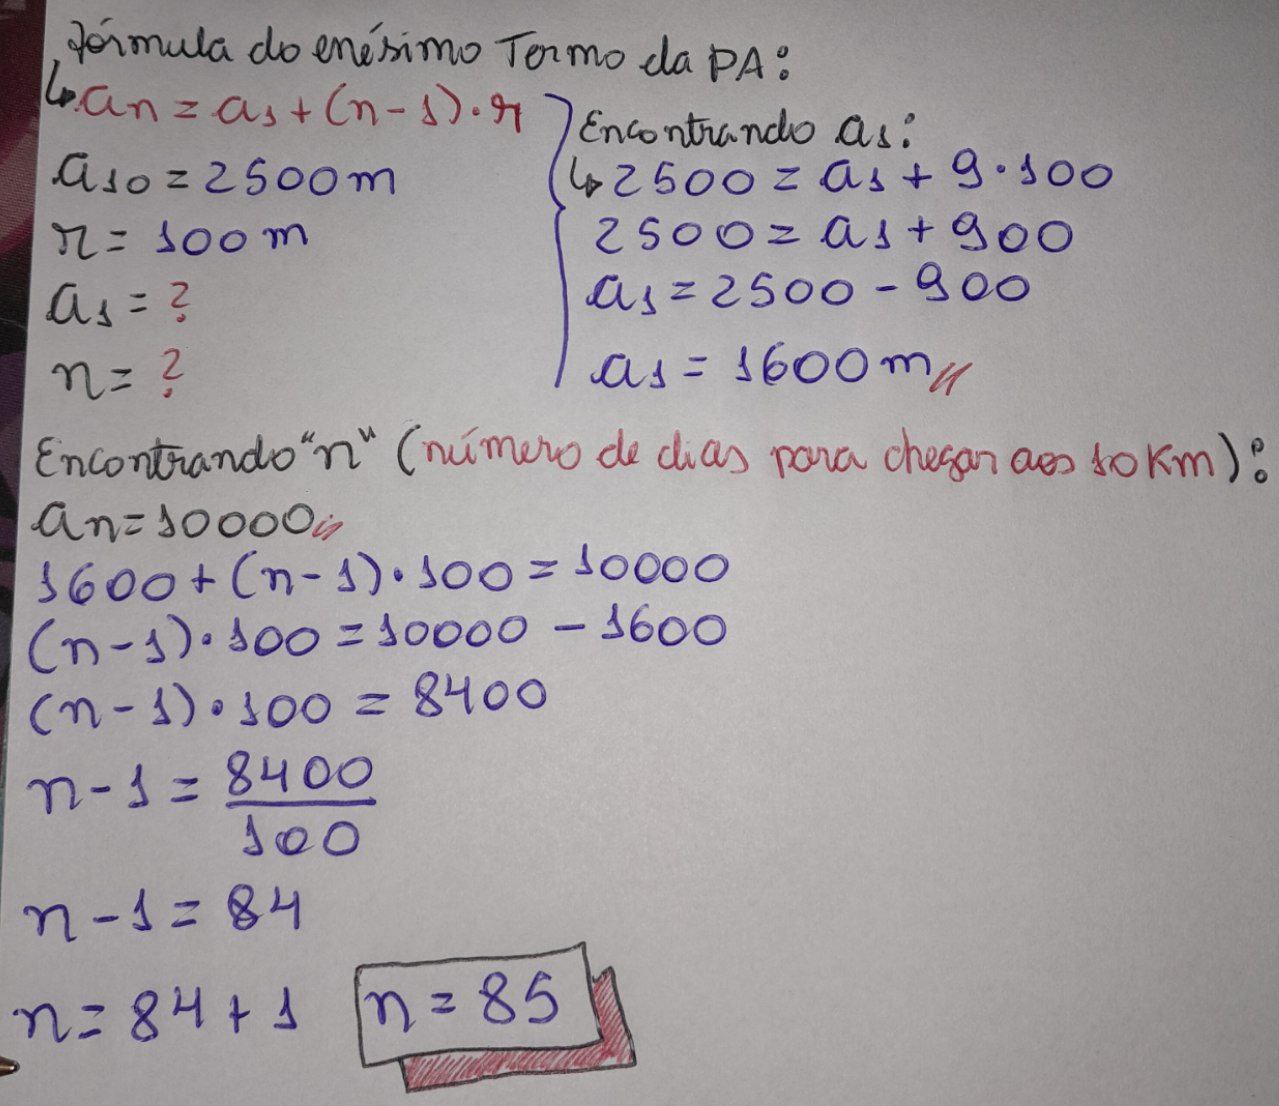 Fórmula do enésimo Termo da PA:
↳ an = a1 + (n-1)·r
a10 = 2500m
r = 100m
a1 = ?
n = ?
Encontrando a1:
↳ 2500 = a1 + 9·100
2500 = a1 + 900
a1 = 2500 - 900
a1 = 1600m//
Encontrando "n" (número de dias para chegar aos 10Km):
an = 10000//
1600 + (n-1)·100 = 10000
(n-1)·100 = 10000 - 1600
(n-1)·100 = 8400
n-1 = 8400
100
n-1 = 84
n = 84 + 1 n = 85